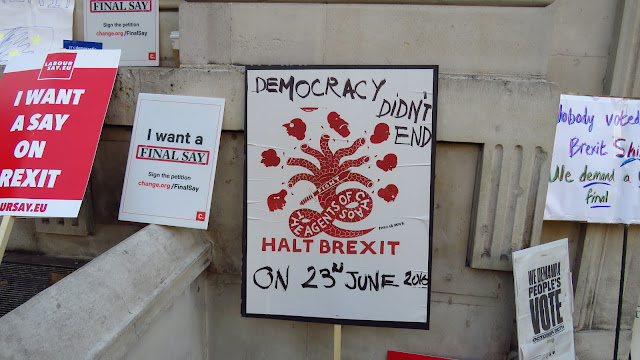 FINAL SAY
Sign the petition
change.org/FinalSay
I want a
FINAL SAY
Sign the petition
change.org/FinalSay
LABOUR
SAY.EU
I WANT
A SAY
ON
REXIT
OURSAY.EU
I want a
FINAL SAY
Sign the petition
change.org/FinalSay
DEMOCRACY DIDN'T
END
AGENTS OF
CHAOS
HALT BREXIT
ON 23RD JUNE 2016
Nobody voted
Brexit
We demand a
final
WE DEMAND A
PEOPLE'S
VOTE